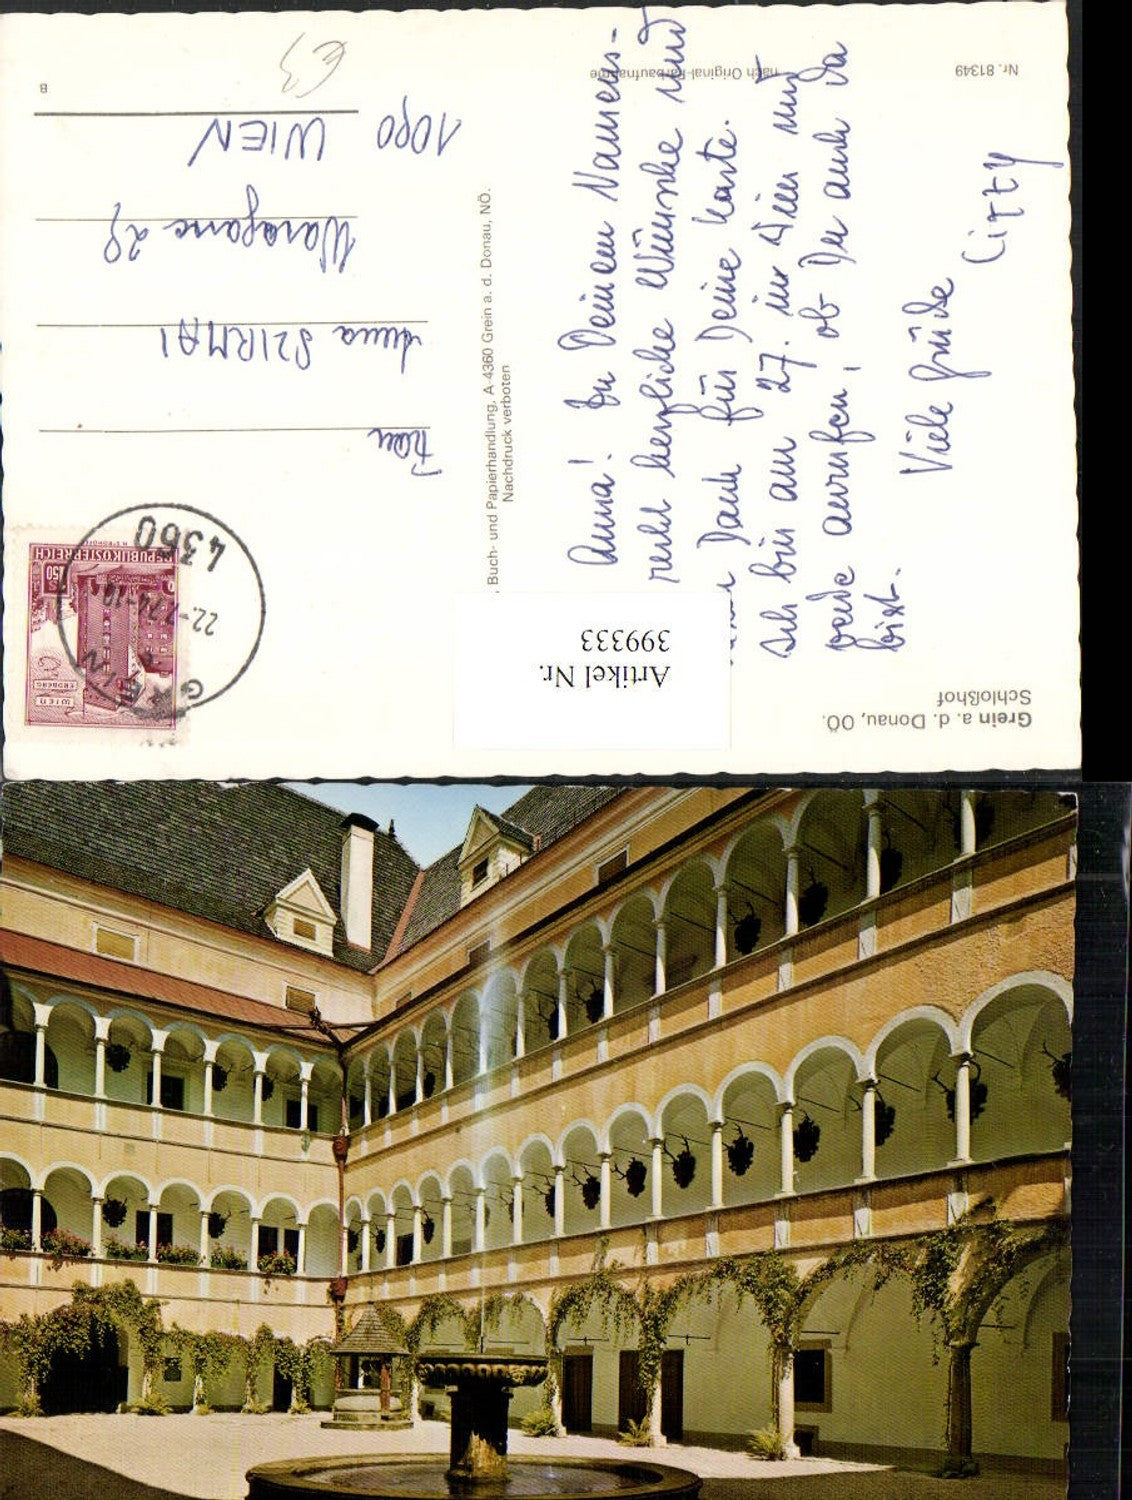 Grein a. d. Donau, OÖ.
Schloßhof
Anna! Zu Deinem Namens-
recht herzliche Wünsche und
Dank für Deine Karte.
Ich bin am 27. in Wien und
werde anrufen, ob Du auch da
bist.
Viele Grüße
Citty
Artikel Nr.
399333
Buch- und Papierhandlung, A-4360 Grein a. d. Donau, NÖ.
Nachdruck verboten
GREIN
22.-7.74-10
4360
WIEN
ERDBERG
1.50
REPUBLIK ÖSTERREICH
Frau
Anna SZIRMAI
29
1090 WIEN
€3
B
Nr. 81349
nach Original-Farbaufnahme